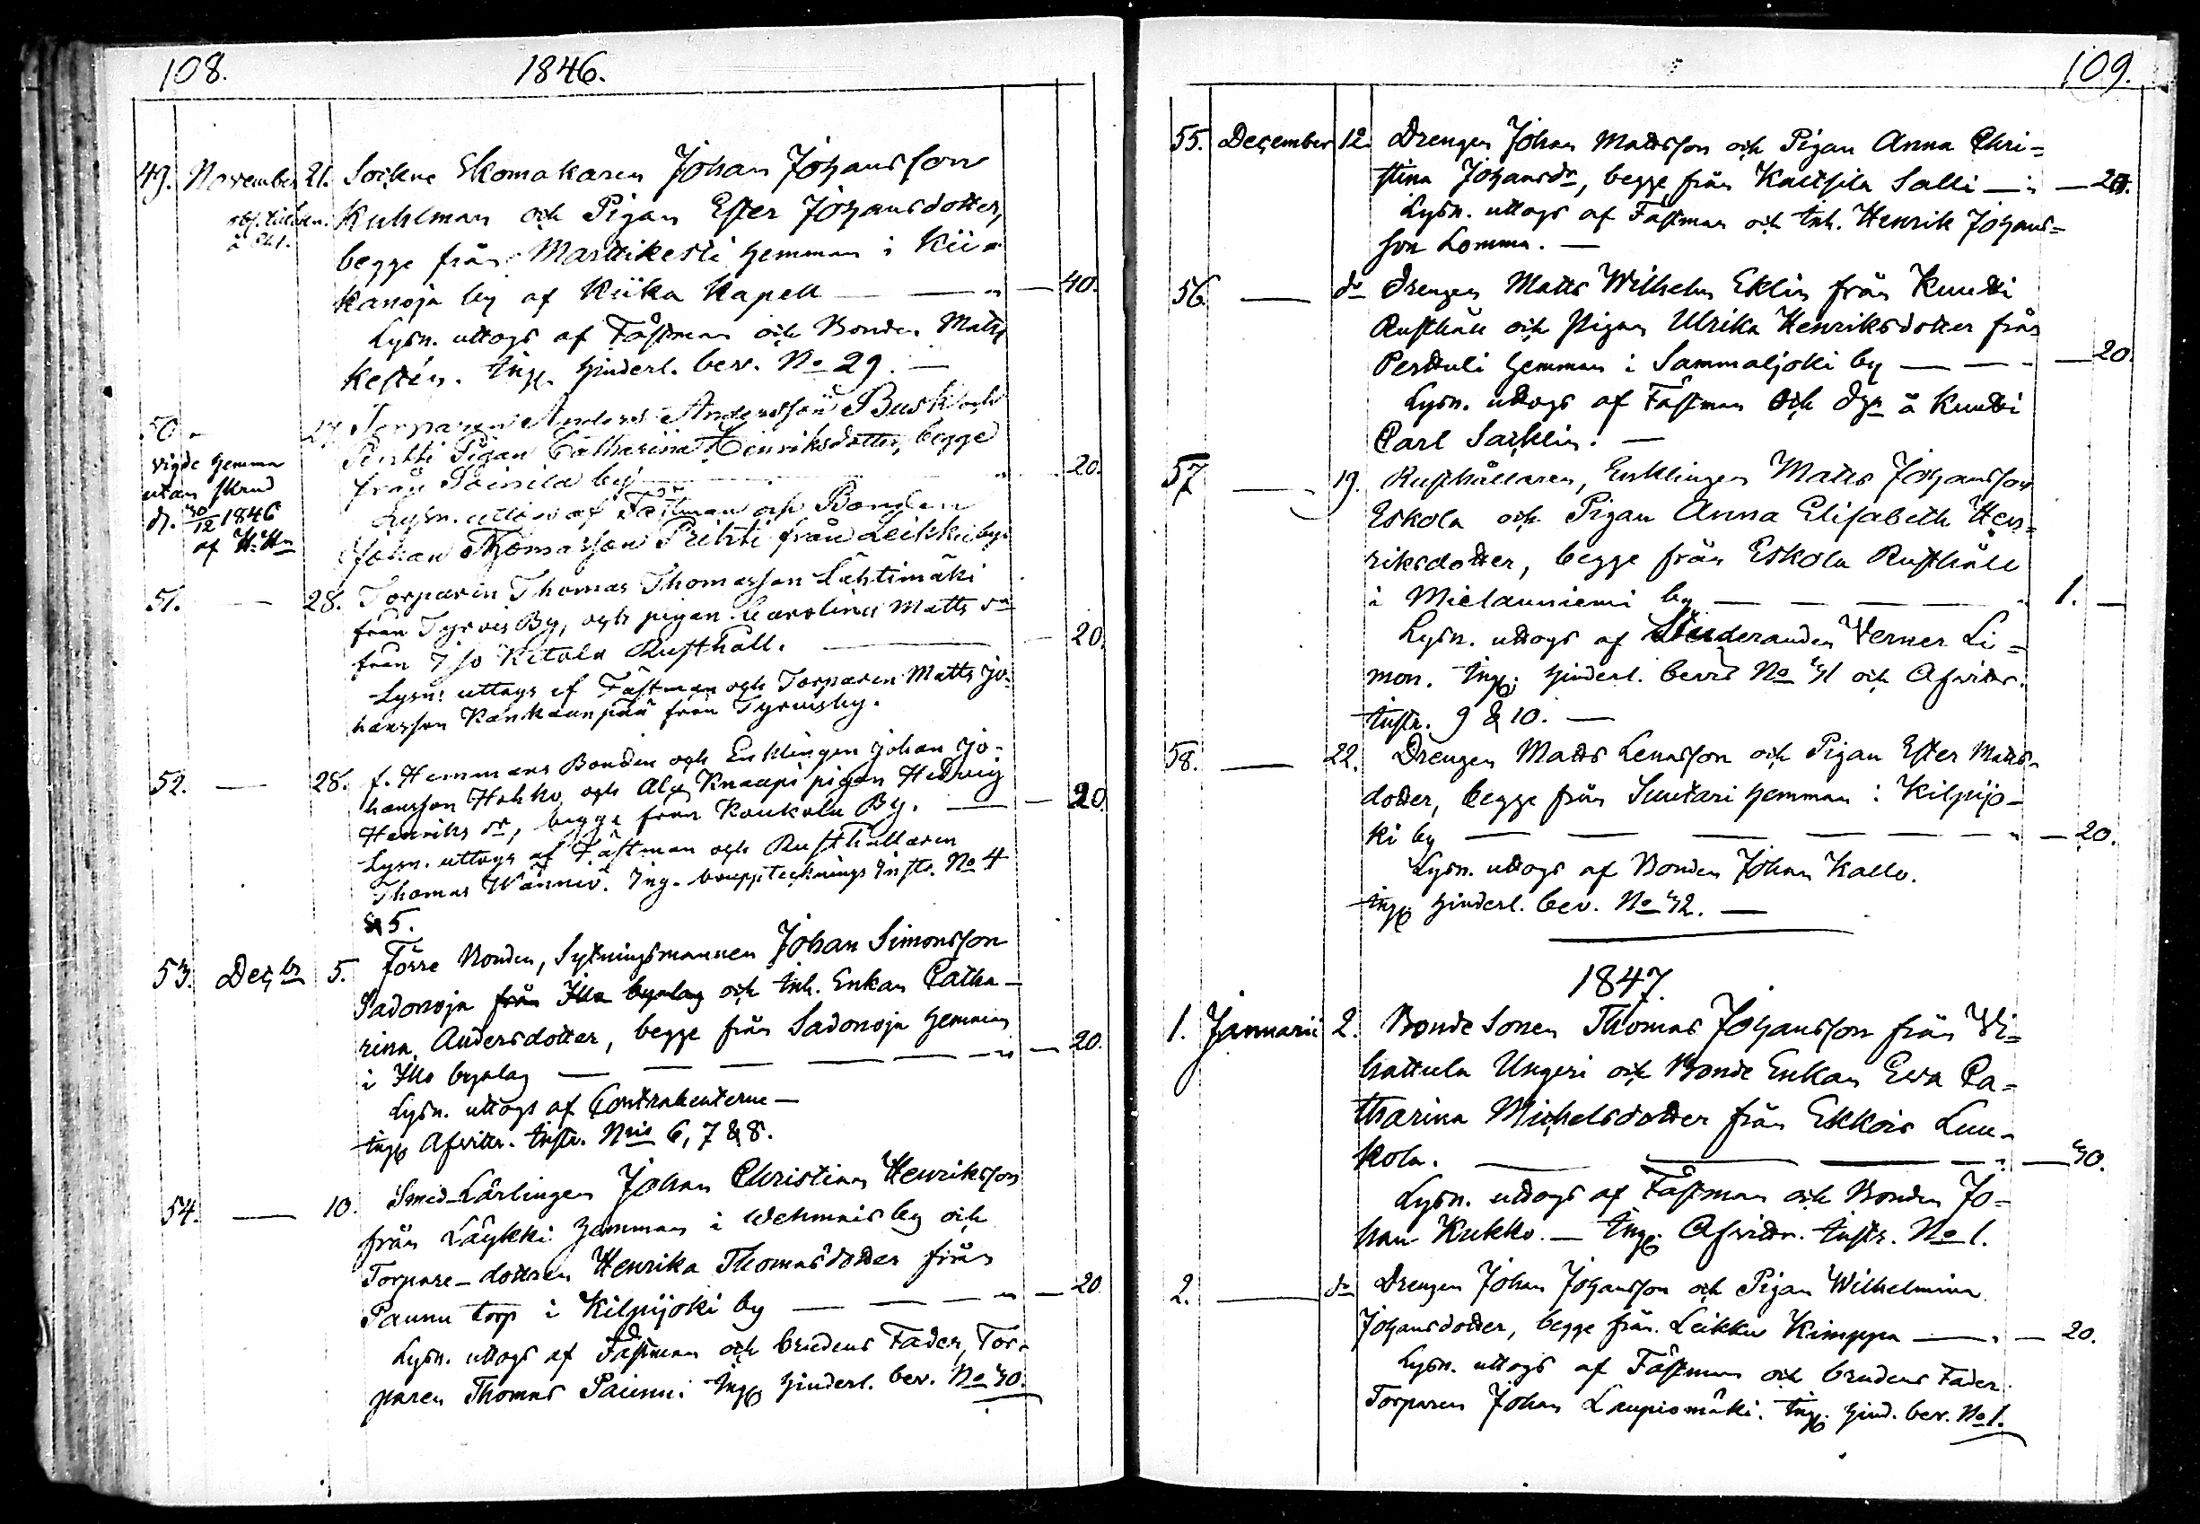 108. 1846.
49. November 21. Sockne Skomakaren Johan Johansson
Kuhlman och Pigan Ester Johansdotter,
begge från Martikesti hemman i Kii-
kanoja by af Kiika Kapell — — " — 40.
Lysn. uttogs af Fästman och Bonden Matts
Kestén. Ing. hinderl. bev. No 29. —
50. " 27. Torparen Anders Andersson Busk och
Pigan Catharina Henriksdotter, begge
från Soinila by — " — 20.
vigde hemma
utan skrud
d. 30/12 1846
af
Lysn. uttogs af Fästman och Bonden
Johan Thomasson Prihti från Leikku by.
51. — 28. Torparen Thomas Thomasson Lähtimäki
från Tyrvis By, och pigan Carolina Matts dr
från Iso Ketola Rusthåll. — — 20.
Lysn. uttogs af Fästman och Torparen Matts Jo-
hansson Kankaanpää från Tyrvisby.
52. — 28. f. Hemmans Bonden och Enklingen Johan Jo-
hansson Hohko och Ala Knaapi pigan Hedvig
Henriks dr, begge från Koukola By. — — 20.
Lysn. uttogs af Fästman och Rusthållaren
Thomas Wännio. Ing. boupptecknings Instr. No 4
& 5.
53. Decbr 5. Förre Bonden, Sytningsmannen Johan Simonsson
Sadonoja från Illo byalag och Inh. Enkan Catha-
rina Andersdotter, begge från Sadonoja hemman
i Illo byalag — — — — " — 20.
Lysn. uttogs af Contrahenterne —
Ing. Afvittr. Instr. Nris 6, 7 & 8.
54. — 10. Smed-Lärlingen Johan Christian Henriksson
från Läykki hemman i Wehmais by och
Torpare-dottren Henrika Thomasdotter från
Paunu torp i Kilpijoki by — — — " — 20
Lysn. uttogs af Fästman och brudens Fader, Tor-
paren Thomas Paunu. Ing. hinderl. bev. No 30.
109.
55. December 12. Drengen Johan Mattsson och Pigan Anna Chri-
stina Johansdr, begge från Kaltsila Salli — " — 20.
Lysn. uttogs af Fästman och Inh. Henrik Johans-
son Lomma. —
56 — do Drengen Matts Wilhelm Eklin från Knutti
Rusthåll och Pigan Ulrika Henriksdotter från
Perttuli hemman i Sammaljoki by — — — 20.
Lysn. uttogs af Fästman och å Knutti
Carl Sacklin. —
57 — 19. Rusthållaren, Enklingen Matts Johansson
Eskola och Pigan Anna Elisabeth Hen-
riksdotter, begge från Eskola Rusthåll
i Mielauniemi by — — — — " 1. —
Lysn. uttogs af Studeranden Verner Li-
mon. Ing. hinderl. bevis No 31 och Afvittr.
Instr. 9 & 10. —
58. — 22. Drengen Matts Lenasson och Pigan Ester Matts-
dotter, begge från Suutari hemman i Kilpijo-
ki by — — — — — " — 20.
Lysn. uttogs af Bonden Johan Kallo.
Ing. hinderl. bev. No 32. —
1847.
1. Januarii 2. Bonde Sonen Thomas Johansson från Wi-
hattula Ungeri och Bonde Enkan Eva Ca-
tharina Michelsdotter från Ekkois Luu-
kola. — — — " — 30.
Lysn. uttogs af Fästman och Bonden Jo-
han Kukko. — Ing. Afvittr. Instr. No 1.
2. — do Drengen Johan Johansson och Pigan Wilhelmina
Johansdotter, begge från Leikku Kimppa — " — 20.
Lysn. uttogs af Fästman och brudens Fader
Torparen Johan Laupiomäki. Ing. hind. bev. No 1.